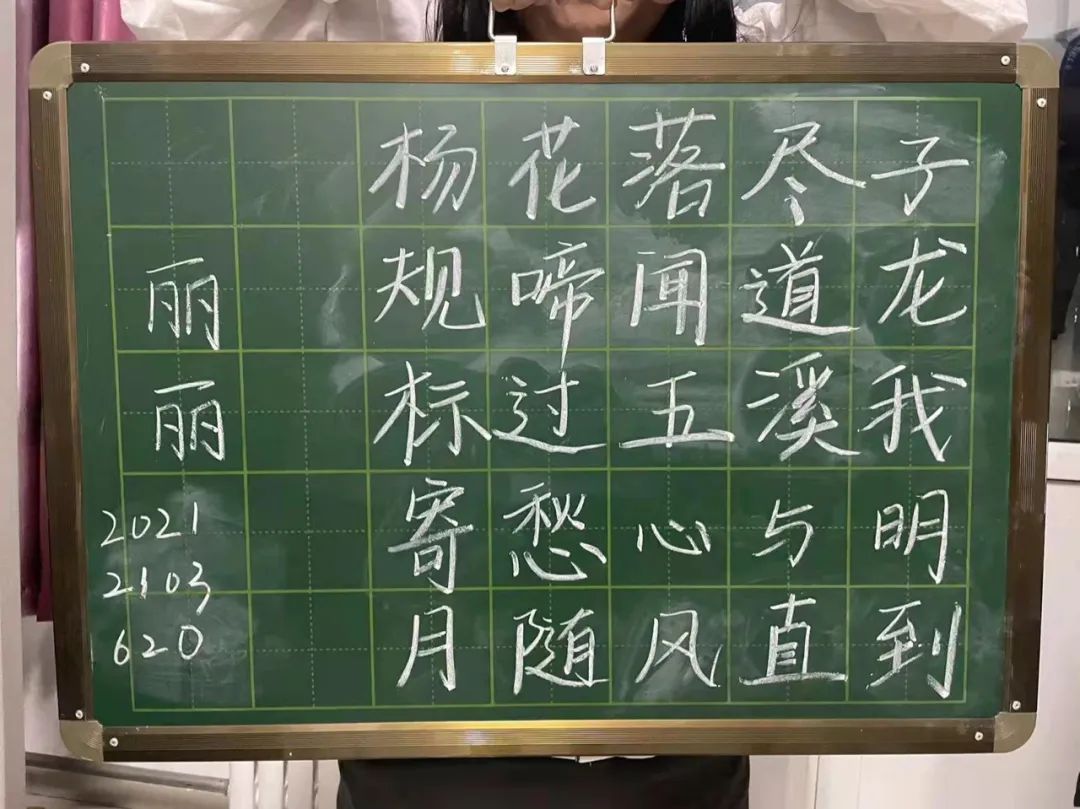 杨花落尽子
规啼闻道龙
标过五溪我
寄愁心与明
月随风直到
丽
丽
2021
2103
620